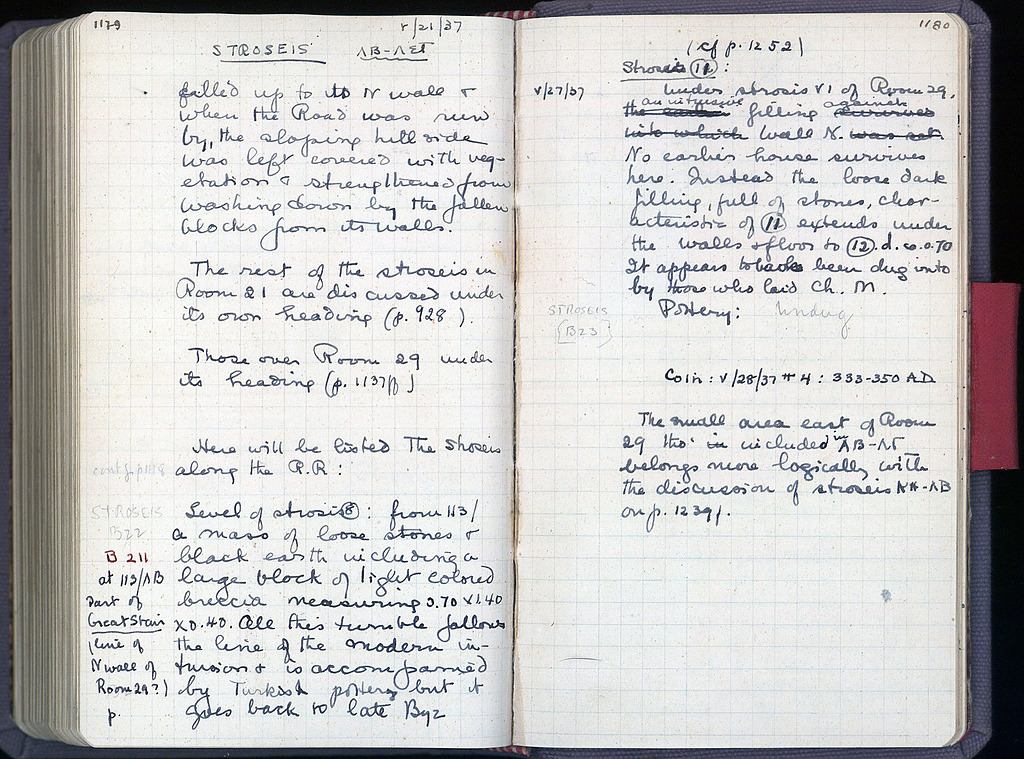 1179
V/21/37
STROSEIS ΛB-ΛET
filled up to its N wall &
when the Road was run
by, the sloping hill side
was left covered with veg-
etation & strengthened from
washing down by the fallen
blocks from its walls.
The rest of the stroseis in
Room 21 are discussed under
its own heading (p. 928 ).
Those over Room 29 under
its heading (p. 1137ff)
Here will be listed The Stroseis
along the R.R:
STROSEIS
B22
B 211
at 113/ΛB
part of
Great Stair
(line of
N wall of
Room 29?)
p.
Level of strosis 8: from 113/
a mass of loose stones &
black earth including a
large block of light colored
breccia measuring 0.70 x 1.40
x 0.40. All this tumble follows
the line of the modern in-
trusion & is accompanied
by Turkish pottery but it
goes back to late Byz
1180
(cf p. 1252)
Strosis 11 :
V/27/37
under strosis VI of Room 29,
the earlier an intrusive filling survives against
into which wall N. was set.
No earlier house survives
here. Instead the loose dark
filling, full of stones, char-
acteristic of 11 extends under
the walls & floor to 12. d. c. 0.70
It appears to have been dug into
by those who laid Ch. M.
STROSEIS
B23
Pottery: Undug
Coin: V/28/37 # 4: 333-350 AD
The small area east of Room
29 tho' in included in ΛB-ΛΓ
belongs more logically with
the discussion of stroseis KH-ΛB
on p. 1239f.